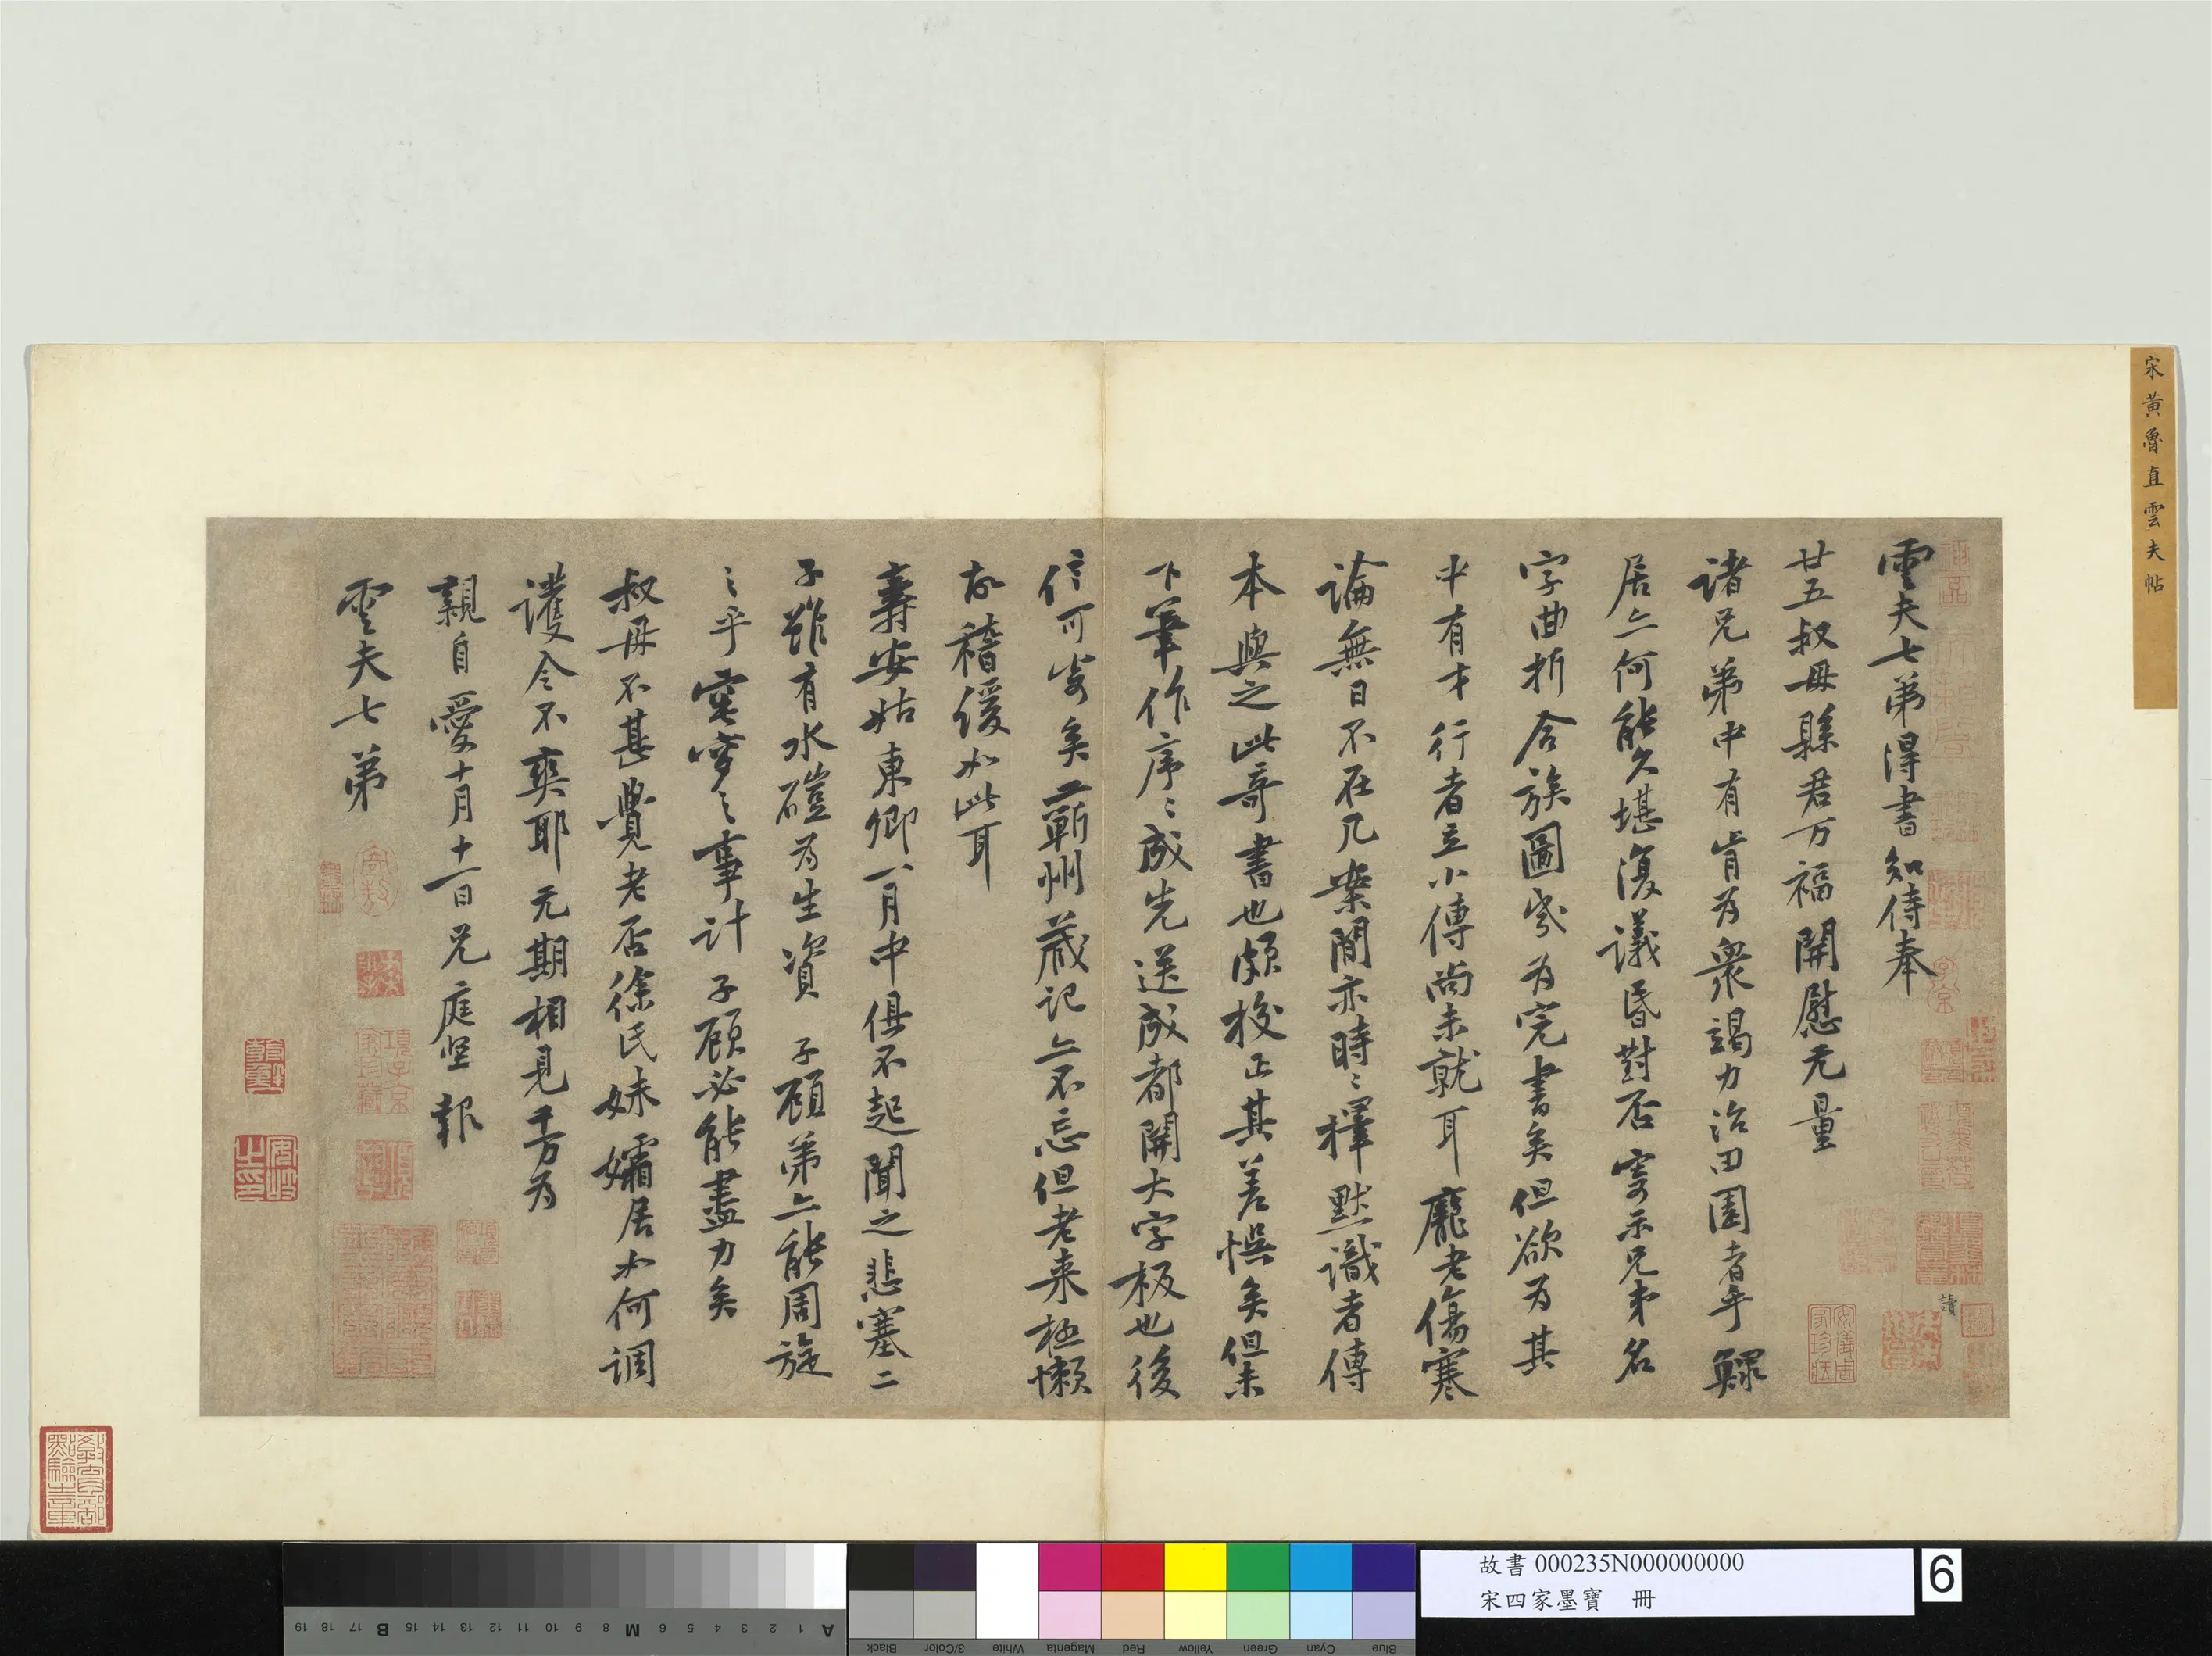 宋黃魯直雲夫帖
雲夫七弟得書知侍奉
廿五叔母縣君万福開慰无量
諸兄弟中有肯为衆竭力治田園者乎鰥
居亦何能久堪復議昏對否寄示兄弟名
字曲折合族圖當为完書矣但欲为其
中有才行者立小傳尚未就耳龐老傷寒
論無日不在几案間亦時〻擇默識者傳
本與之此奇書也頗校正其差悞矣但未
下筆作序〻成先送成都開大字板也後
信可寄矣蘄州藏記亦不忘但老来極懶
故稽緩如此耳
壽安姑東卿一月中俱不起聞之悲塞二
子雖有水磑为生資子顧弟亦能周旋
之乎窀穸之事計子顧必能盡力矣
叔母不甚覺老否徐氏妹孀居如何調
護令不爽耶无期相見千万为
親自愛十月十一日兄庭堅報
雲夫七弟
讀
教育部點驗之章
故書 000235N000000000
宋四家墨寶 冊
6
19 18 17 B 15 14 13 12 11 10 9 8 M 6 5 4 3 2 1 A
Black 3/Color White Magenta Red Yellow Green Cyan Blue